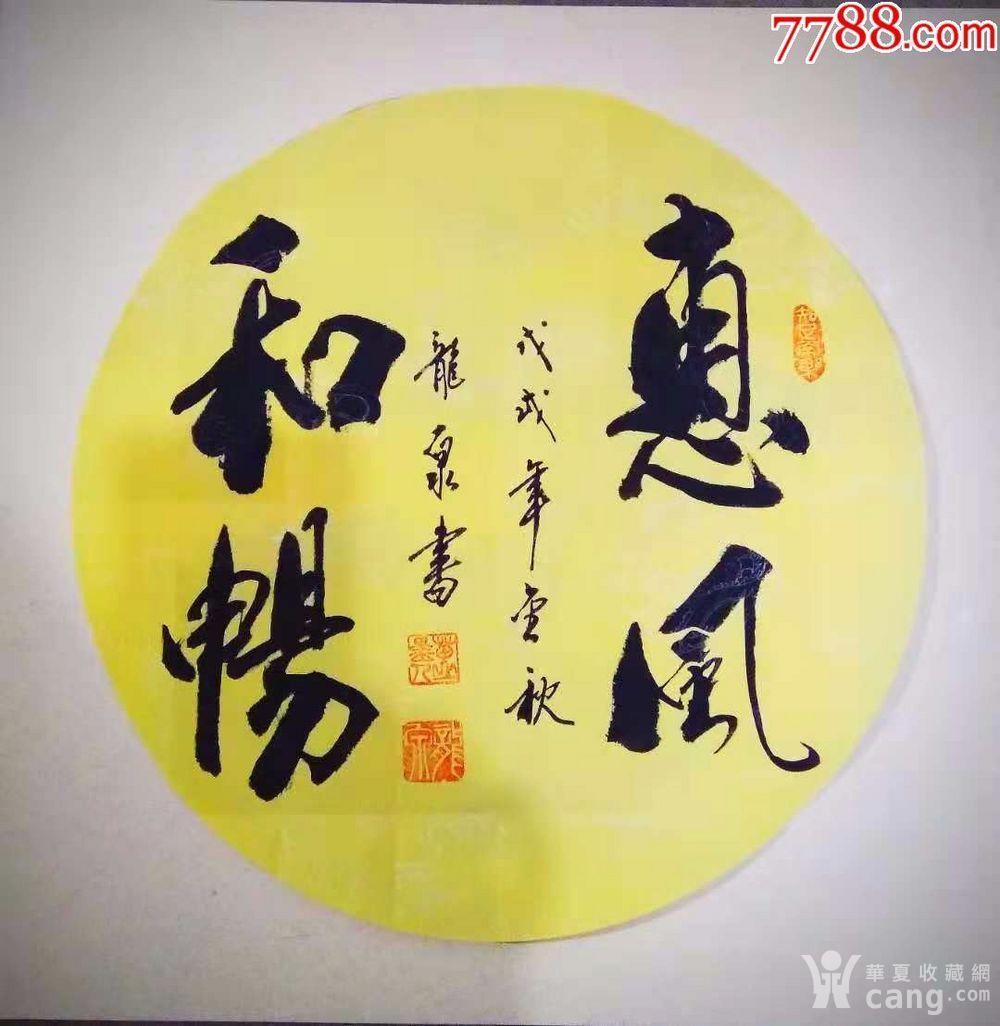 7788.com
惠風
戊戌年金秋
龍泉書
和暢
龍泉
華夏收藏網
cang.com